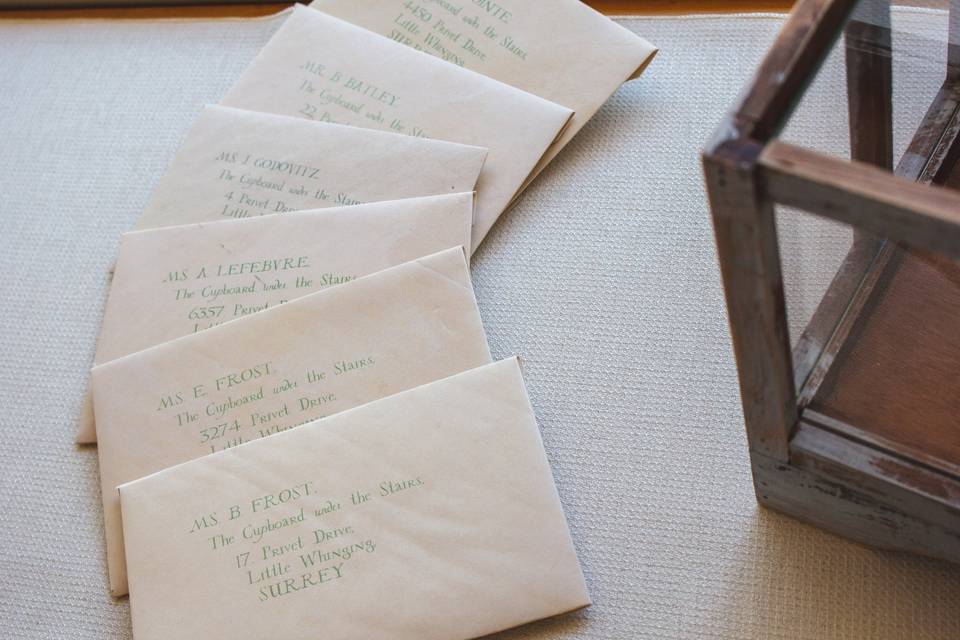 4450 Privet Drive,
Little Whinging,
MR. B BATLEY,
The Cupboard under the Stairs,
22
MS. J. GODOVITZ,
The Cupboard under the Stairs,
4 Privet
Little
MS. A. LEFEBVRE,
The Cupboard under the Stairs,
6357 Privet
MS. E. FROST,
The Cupboard under the Stairs,
3274 Privet Drive,
Little Whinging
MS. B FROST,
The Cupboard under the Stairs,
17 Privet Drive,
Little Whinging,
SURREY